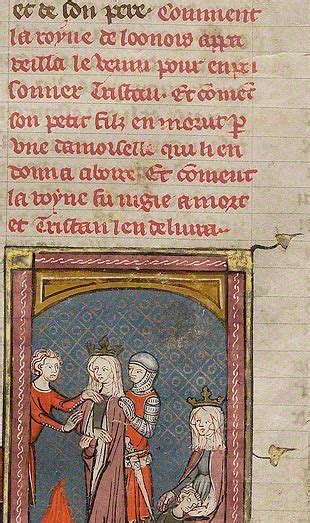 et de son pere. Comment
la royne de loonois appa
reilla le venin pour enpoi
sonner Tristan. Et com̄et
son petit filz en morut ꝑ
vne damoiselle qui li en
donna a boire. Et com̄ent
la royne fu iugie a mort
et Tristan len deliura.